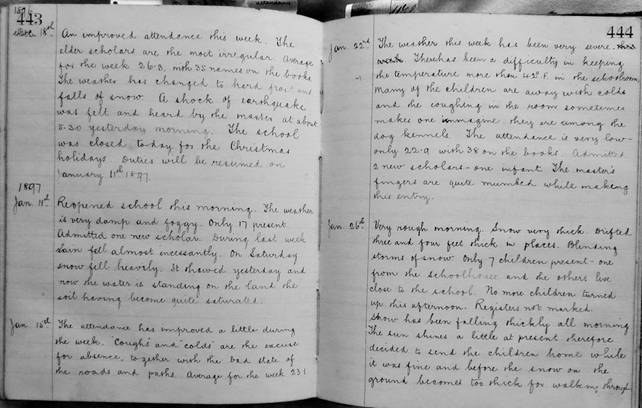 1896
443
Dec. 18th An improved attendance this week. The
elder scholars are the most irregular. Average
for the week 26.3, with 35 names on the books.
The weather has changed to hard frost and
falls of snow. A shock of earthquake
was felt and heard by the master at about
5-30 yesterday morning. The school
was closed today for the Christmas
holidays. Duties will be resumed on
January 11th 1897.
1897
Jan. 11th Reopened school this morning. The weather
is very damp and foggy. Only 17 present.
Admitted one new scholar. During last week
rain fell almost incessantly. On Saturday
snow fell heavily. It thawed yesterday and
now the water is standing on the land the
soil having become quite saturated.
Jan. 15th The attendance has improved a little during
the week. "Coughs and colds" are the excuse
for absence, together with the bad state of
the roads and paths. Average for the week 23.1
444
Jan. 22nd The weather this week has been very severe.
There has been a difficulty in keeping
the temperature more than 42° F. in the schoolroom.
Many of the children are away with colds
and the coughing in the room sometimes
makes one immagine they are among the
dog kennels. The attendance is very low-
only 22.9 with 38 on the books. Admitted
2 new scholars - one infant. The master's
fingers are quite numbed while making
this entry.
Jan. 26th Very rough morning. Snow very thick. Drifted
three and four feet thick in places. Blinding
storms of snow. Only 7 children present - one
from the schoolhouse and the others live
close to the school. No more children turned
up this afternoon. Registers not marked.
Snow has been falling thickly all morning
The sun shines a little at present therefore
decided to send the children home while
it was fine and before the snow on the
ground becomes too thick for walking through